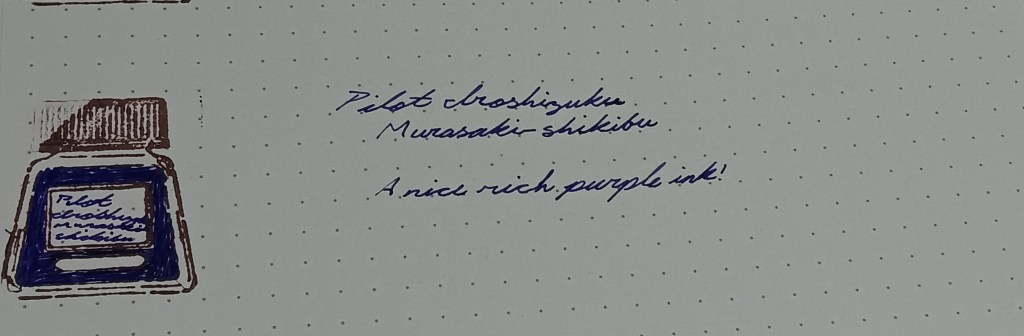 Pilot Iroshizuku
Murasaki-shikibu
A nice rich purple ink!
Pilot
Iroshizuku
Murasaki-
shikibu